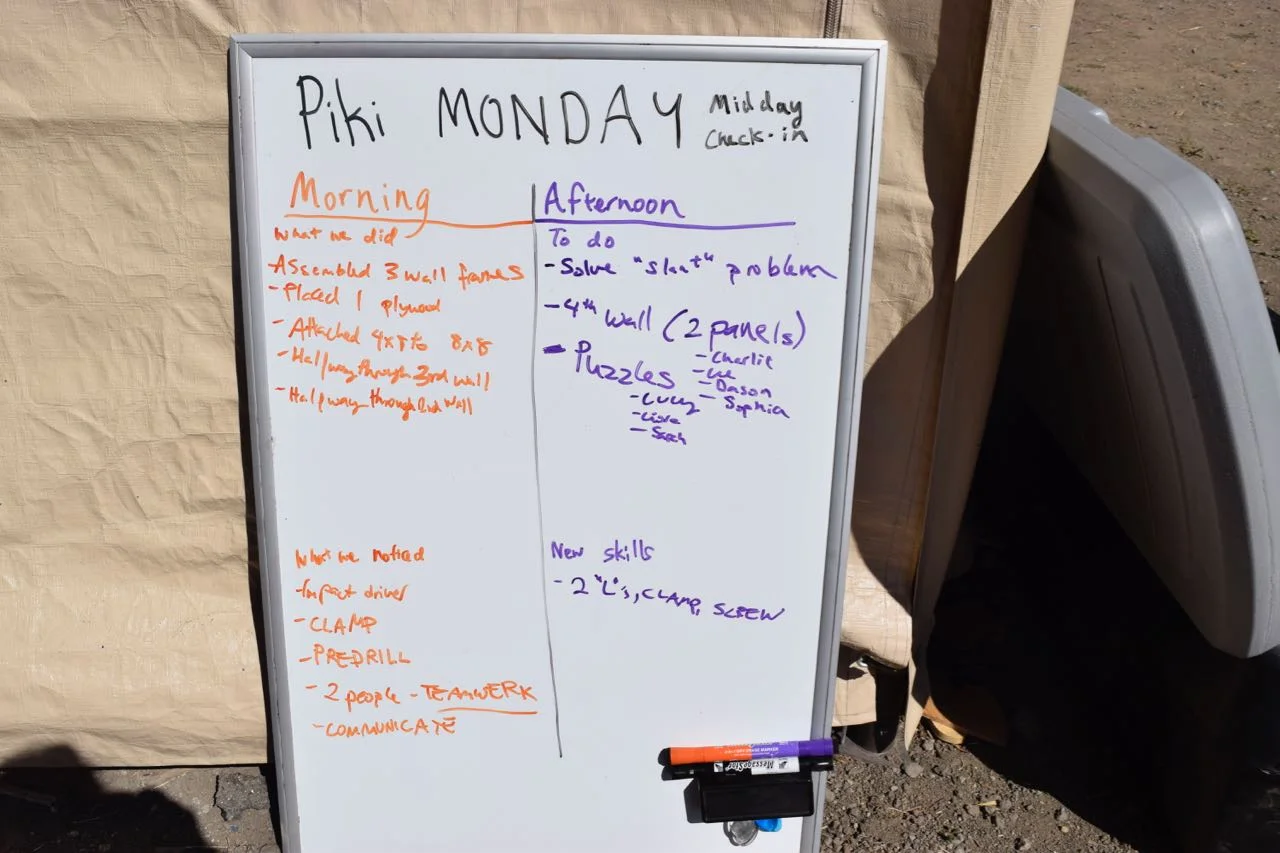 Piki MONDAY Midday
Check-in
Morning
What we did
-Assembled 3 wall frames
-Placed 1 plywood
-Attached 4x8 to 8x8
-Halfway through 3rd wall
-Halfway through 2nd wall
What we noticed
-Impact driver
-CLAMP
-PREDRILL
-2 people - TEAMWERK
-COMMUNICATE
Afternoon
To do
-Solve "slant" problem
-4th wall (2 panels)
-Puzzles
-Charlie
-Sophia
-Lucy
New skills
-2 "L"s, CLAMP, SCREW